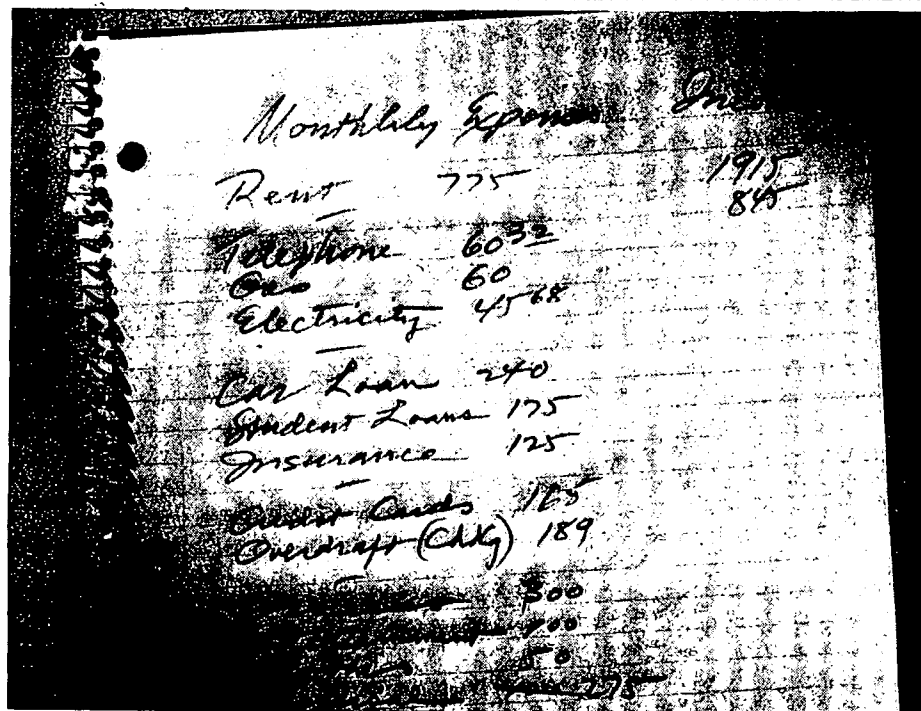 Monthlily Expenses
Rent 775 1915
845
Telephone 60 32
Gas 60
Electricity 45 68
Car Loan 240
Student Loans 175
Insurance 125
Credit Cards 165
Overdraft (Chkg) 189
300
50
275